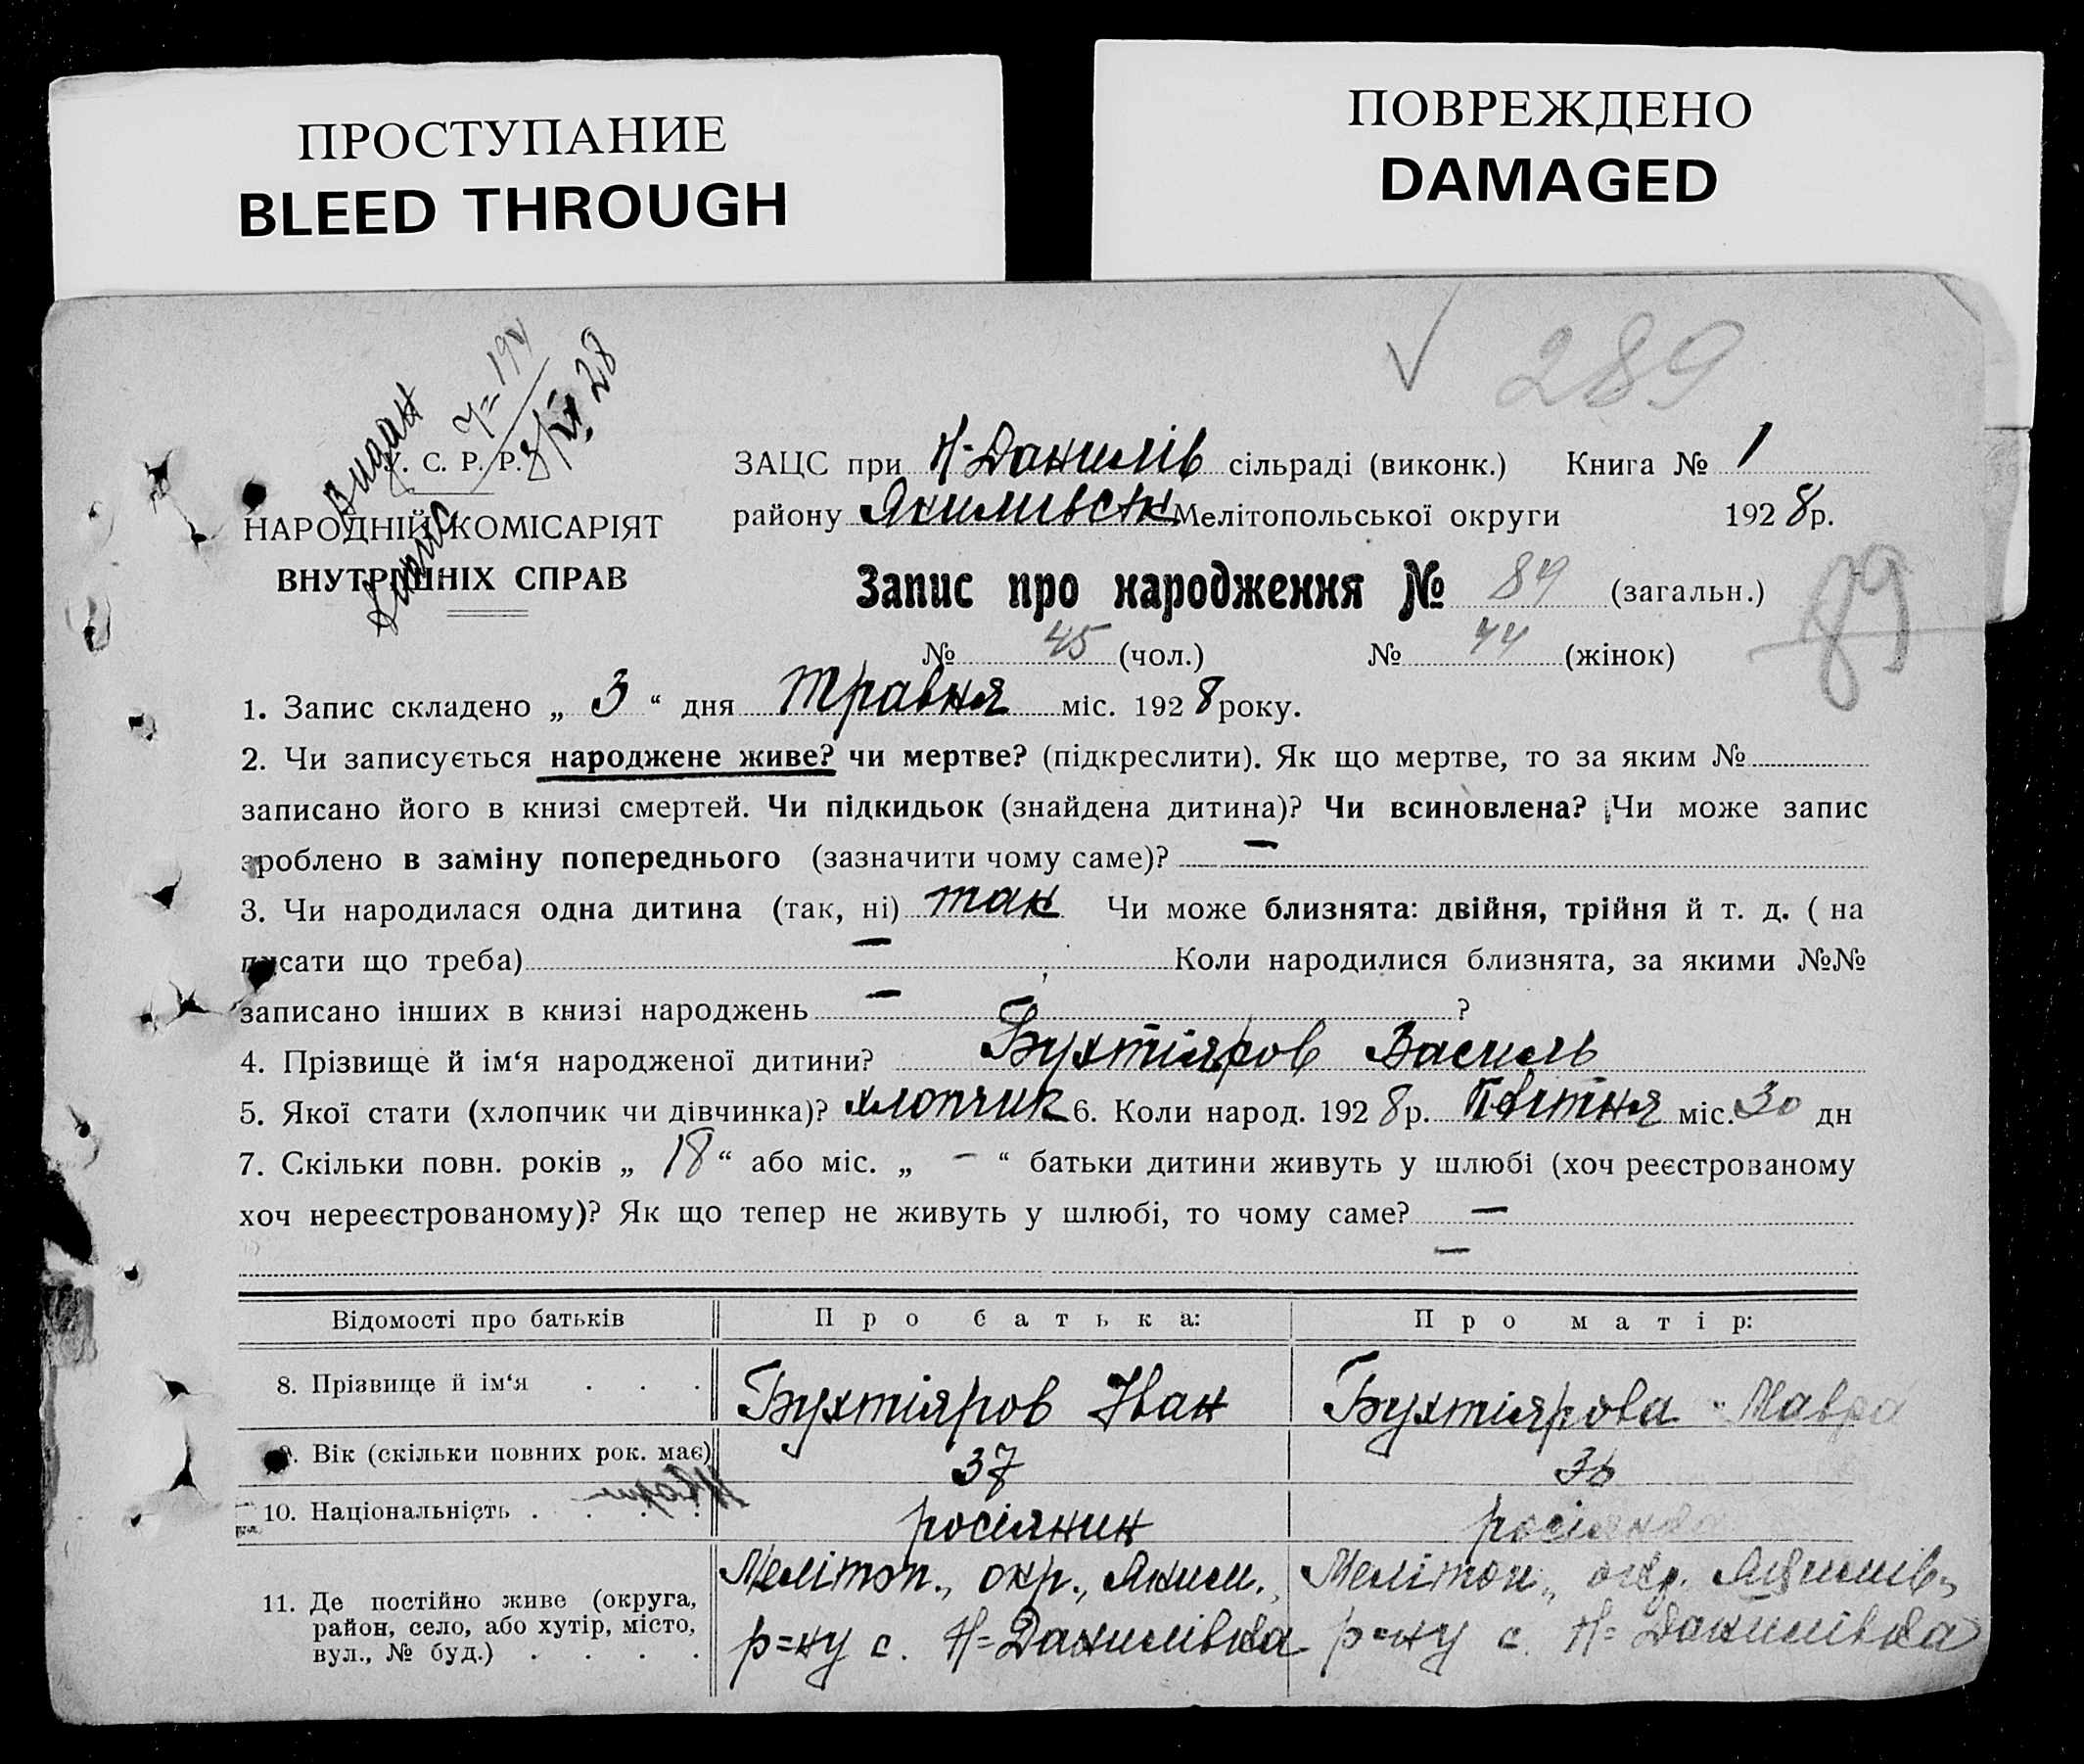 ПРОСТУПАНИЕ
BLEED THROUGH
ПОВРЕЖДЕНО
DAMAGED
289
Видан
8/VI 28
С. Р. Р.
НАРОДНІЙ КОМІСАРІЯТ
ВНУТРІШНІХ СПРАВ
ЗАЦС при Н-Данилів сільраді (виконк.) Книга № 1
району Якимівськ Мелітопольської округи 1928 р.
Запис про народження № 89 (загальн.)
89
№ 45 (чол.) № 44 (жінок)
1. Запис складено „ 3 “ дня травня міс. 1928 року.
2. Чи записується народжене живе? чи мертве? (підкреслити). Як що мертве, то за яким №
записано його в книзі смертей. Чи підкидьок (знайдена дитина)? Чи всиновлена? Чи може запис
зроблено в заміну попереднього (зазначити чому саме)? —
3. Чи народилася одна дитина (так, ні) так Чи може близнята: двійня, трійня й т. д. ( на
писати що треба) — Коли народилися близнята, за якими №№
записано інших в книзі народжень — ?
4. Прізвище й ім‘я народженої дитини? Бухтіяров Василь
5. Якої стати (хлопчик чи дівчинка)? хлопчик 6. Коли народ. 1928 р. квітня міс. 30 дн
7. Скільки повн. років „ 18 “ або міс. „ — “ батьки дитини живуть у шлюбі (хоч реєстрованому
хоч нереєстрованому)? Як що тепер не живуть у шлюбі, то чому саме? —
—
Відомості про батьків Про батька: Про матір:
8. Прізвище й ім‘я . . . Бухтіяров Іван Бухтіярова Мавра
9. Вік (скільки повних рок. має) 37 36
10. Національність . . . . росіянин росіянка
11. Де постійно живе (округа,
район, село, або хутір, місто,
вул., № буд.) . . . .
Мелітоп., окр., Яким.,
р=ну с. Н=Данилівка
Мелітоп., окр. Якимів.,
р=ну с. Н=Данилівка